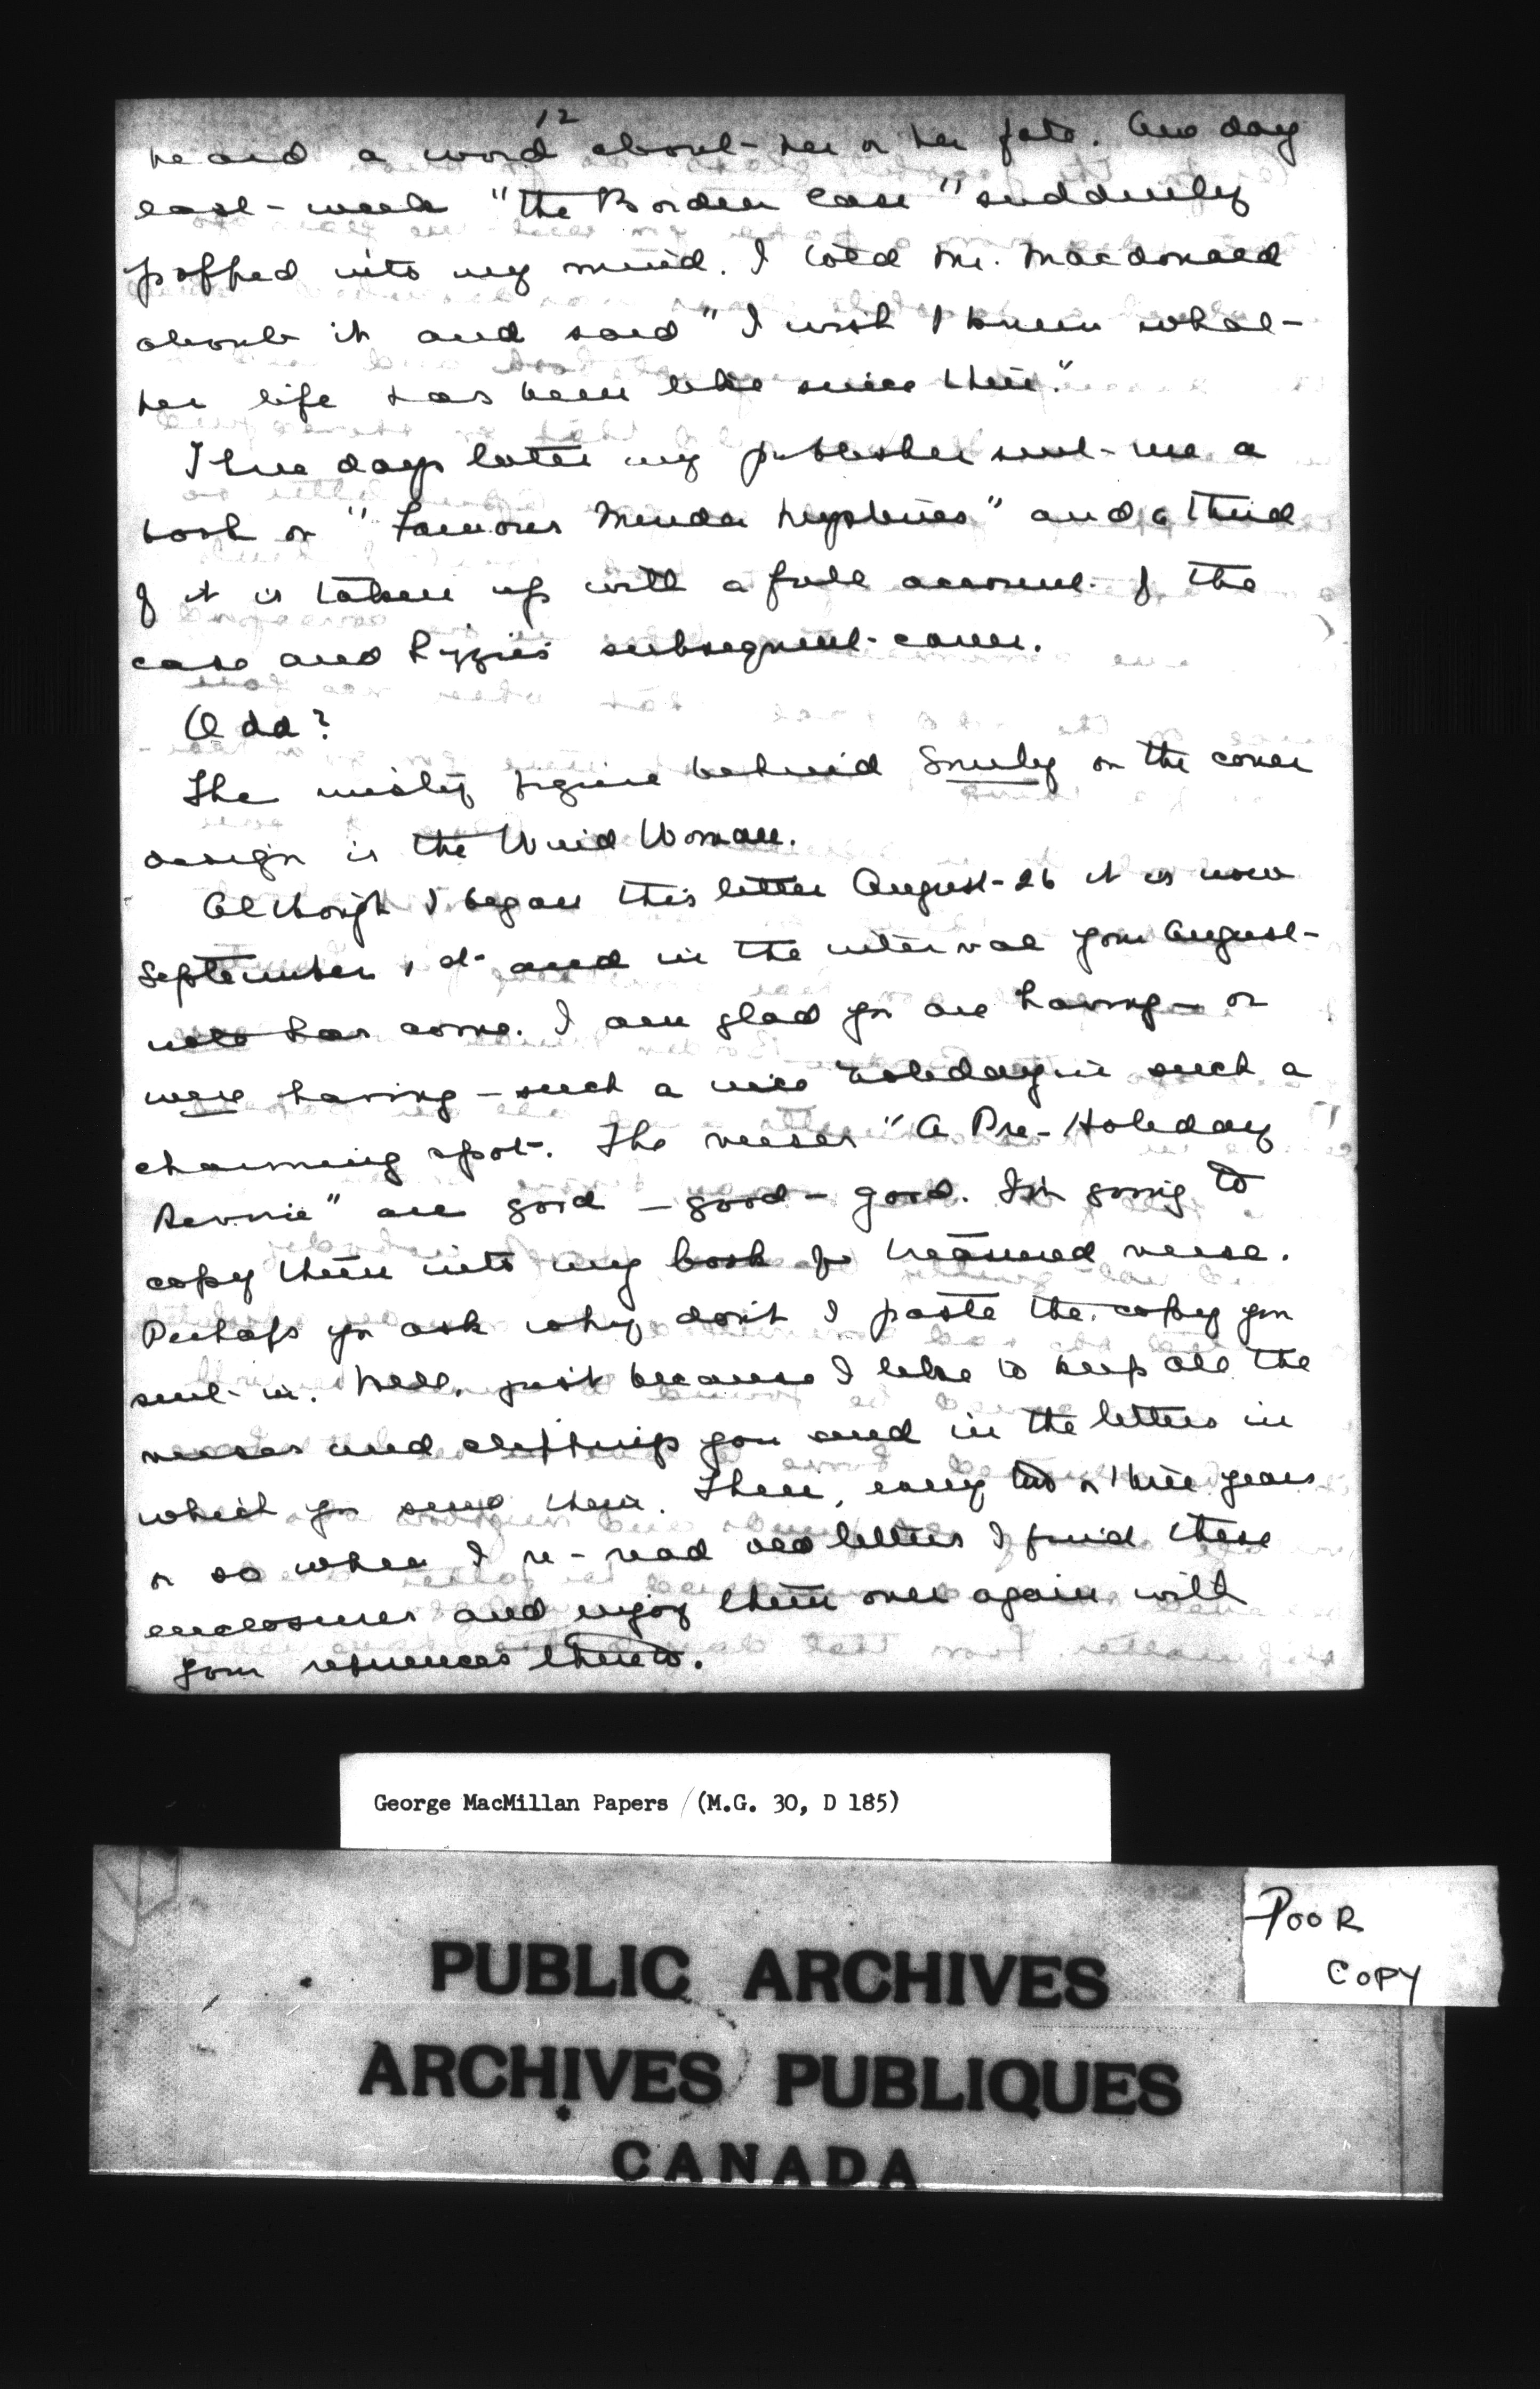 12
heard a word about her or her fate. One day
last week "the Borden Case" suddenly
popped into my mind. I told Mr. Macdonald
about it and said "I wish I knew what
her life has been like since then."
Three days later my publisher sent me a
book on "Famous Murder Mysteries" and a third
of it is taken up with a full account of the
case and Lizzie's subsequent career.
Odd?
The misty figure behind Emily on the cover
design is the Wind Woman.
Although I began this letter August 26 it is now
September 1st and in the interval your August
note has come. I am glad you are having – or
were having – such a nice holiday in such a
charming spot. The verses "A Pre-Holiday
Reverie" are good – good – good. I'm going to
copy them into my book of treasured verse.
Perhaps you ask why don't I paste the copy you
sent in. Well, just because I like to keep all the
verses and clippings you send in the letters in
which you send them. Then, every two or three years
or so when I re-read old letters I find these
enclosures and enjoy them over again with
your references thereto.
George MacMillan Papers (M.G. 30, D 185)
POOR
COPY
PUBLIC ARCHIVES
ARCHIVES PUBLIQUES
CANADA